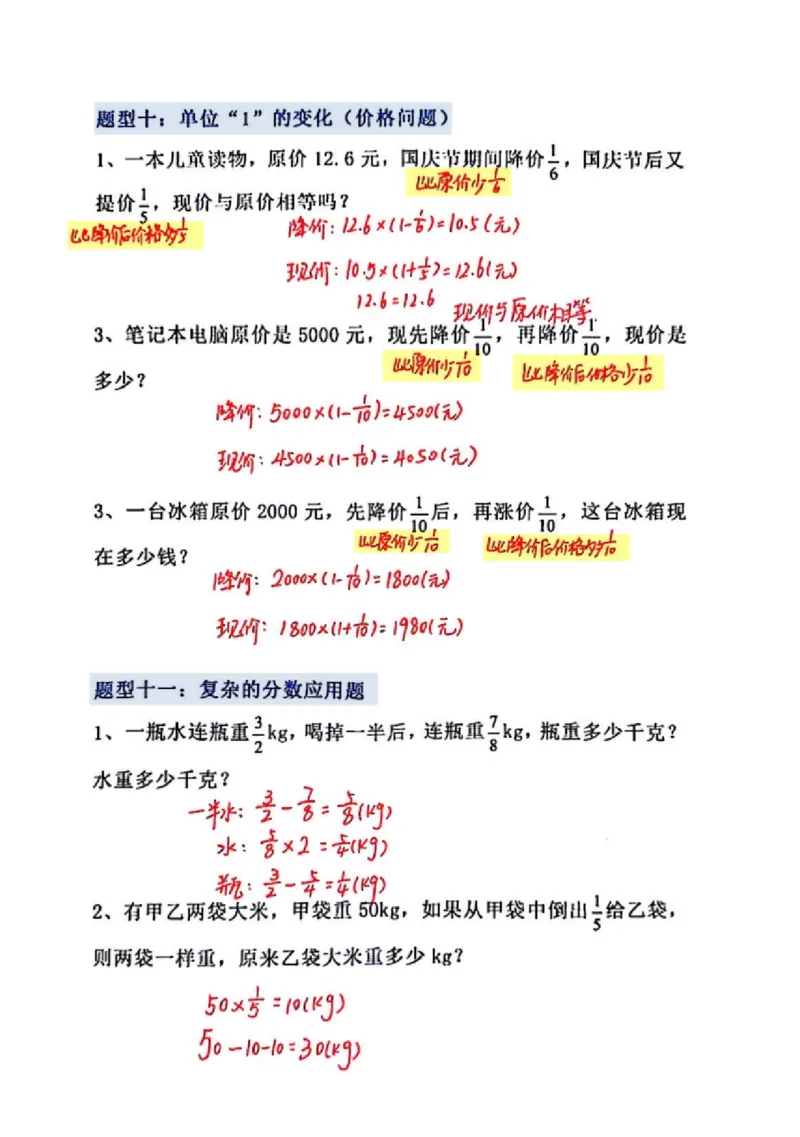 题型十：单位“1”的变化（价格问题）
1、一本儿童读物，原价 12.6 元，国庆节期间降价1/6，国庆节后又
比原价少1/6
提价1/5，现价与原价相等吗？
比降价后价格多1/5
降价：12.6×(1-1/6)=10.5(元)
现价：10.5×(1+1/5)=12.6(元)
12.6=12.6 现价与原价相等.
3、笔记本电脑原价是 5000 元，现先降价1/10，再降价1/10，现价是
比原价少1/10 比降价后价格少1/10
多少？
降价：5000×(1-1/10)=4500(元)
现价：4500×(1-1/10)=4050(元)
3、一台冰箱原价 2000 元，先降价1/10后，再涨价1/10，这台冰箱现
比原价少1/10 比降价后价格多1/10
在多少钱？
降价：2000×(1-1/10)=1800(元)
现价：1800×(1+1/10)=1980(元)
题型十一：复杂的分数应用题
1、一瓶水连瓶重3/2kg，喝掉一半后，连瓶重7/8kg，瓶重多少千克？
水重多少千克？
一半水：3/2-7/8=5/8(kg)
水：5/8×2=5/4(kg)
瓶：3/2-5/4=1/4(kg)
2、有甲乙两袋大米，甲袋重 50kg，如果从甲袋中倒出1/5给乙袋，
则两袋一样重，原来乙袋大米重多少 kg？
50×1/5=10(kg)
50-10-10=30(kg)